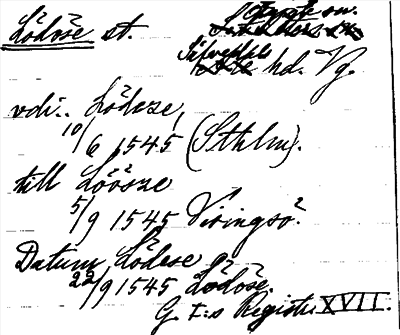 Lödöse st.
Sävedals hd. Vg.
vdi.. Lödese,
10/6 1545 (Sthlm).
till Löösze
5/9 1545 Viringsö.
Datum Lödese
22/9 1545 Lödöse.
G. I:s Registr. XVII.